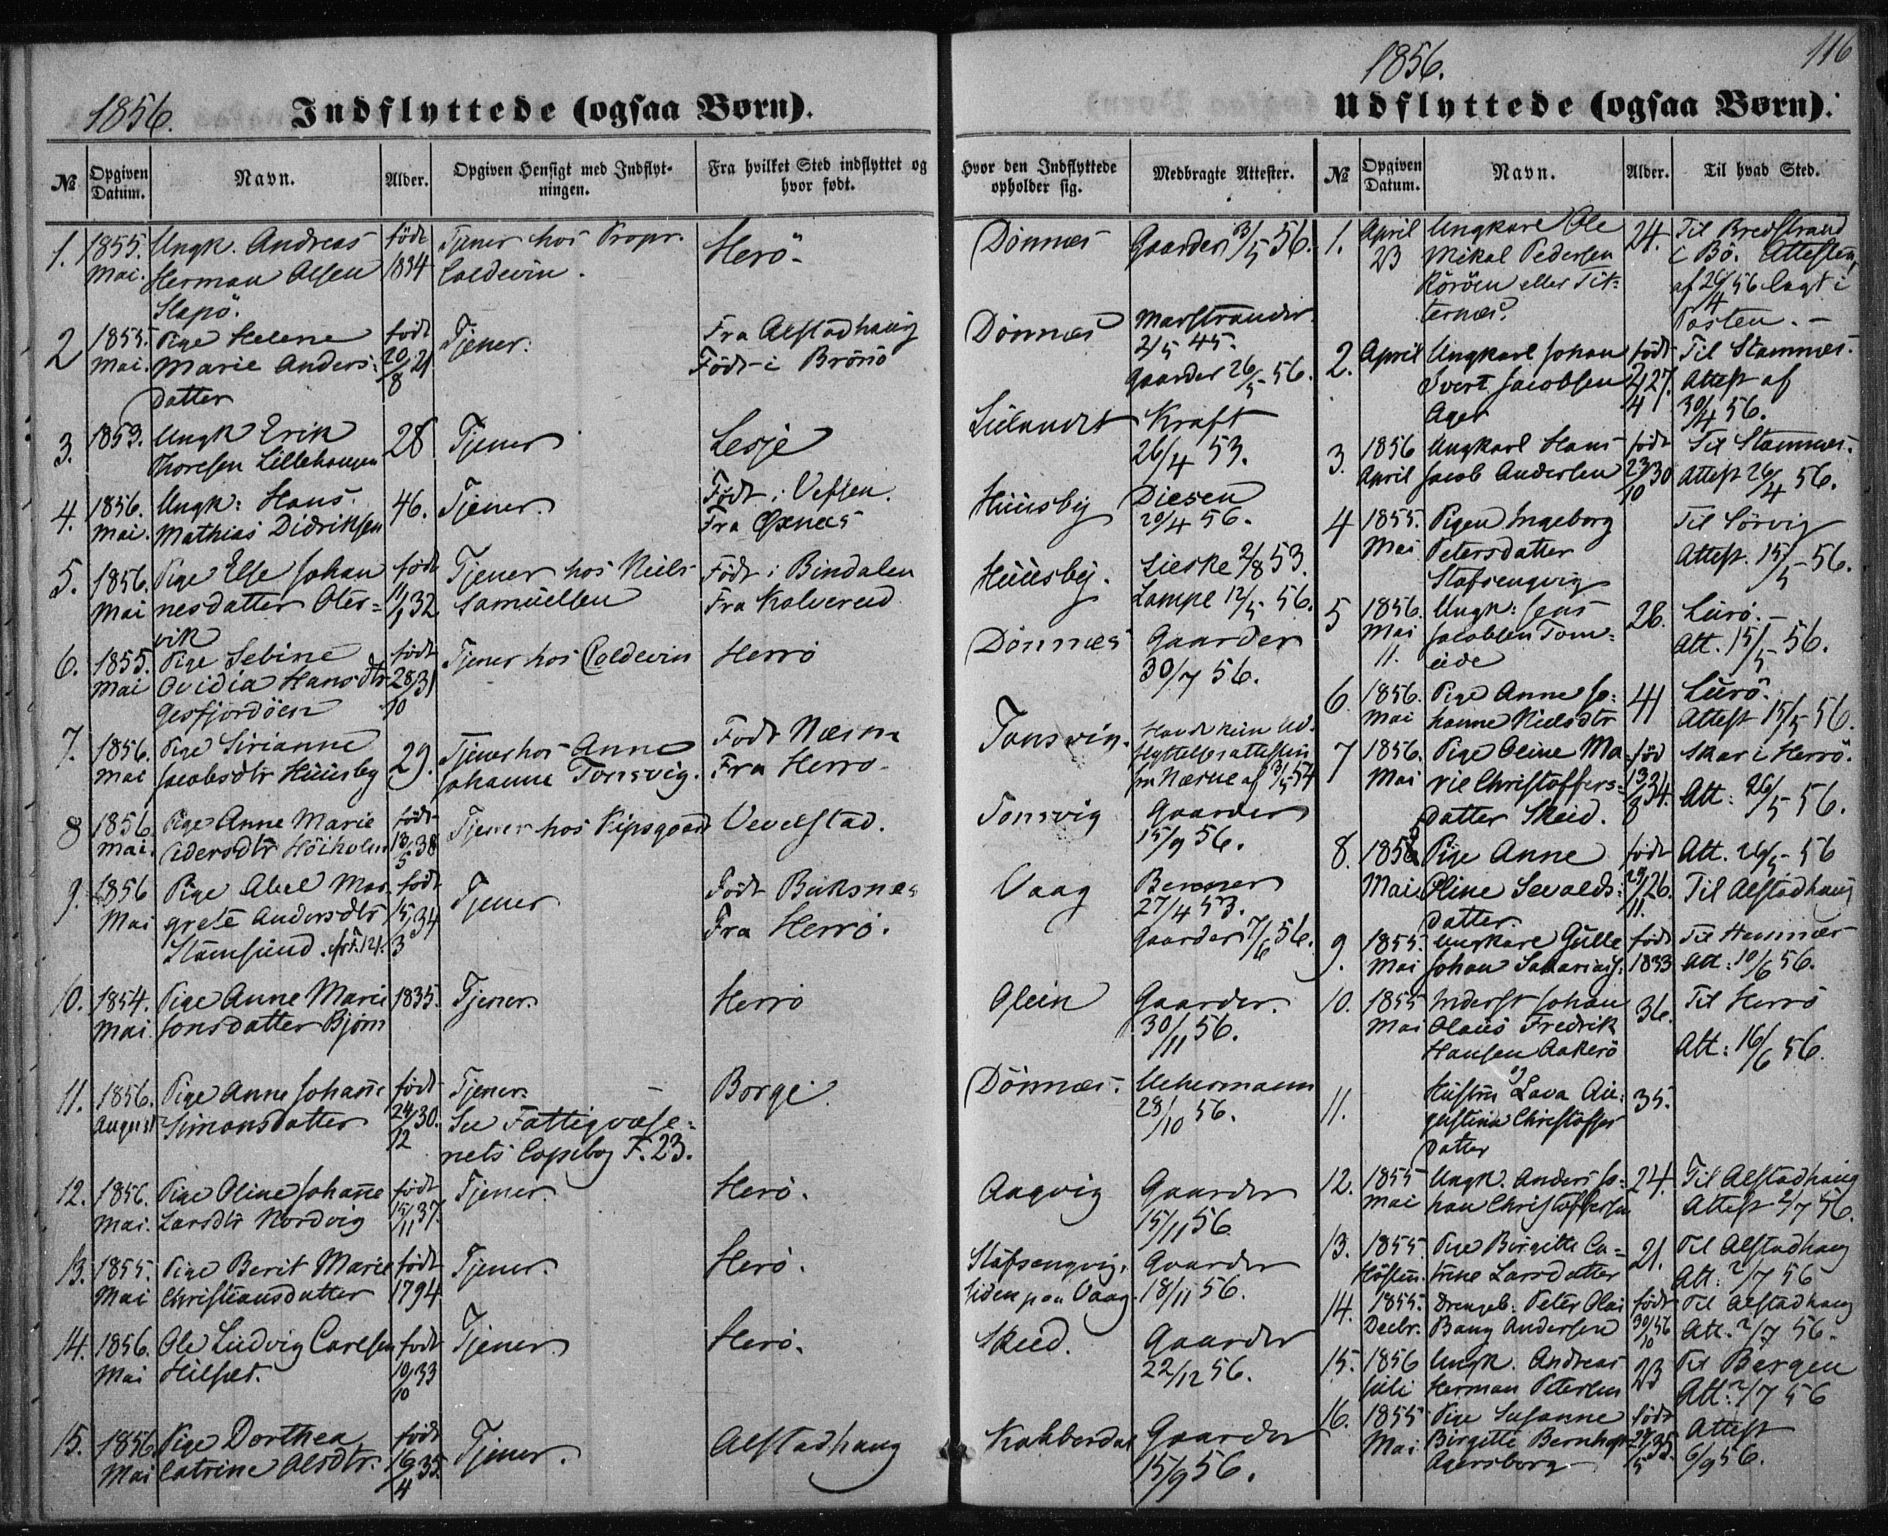 1856.
Indflyttede (ogsaa Børn).
№
Opgiven Datum.
Navn.
Alder.
Opgiven Hensigt med Indflyt-
ningen.
Fra hvilket Sted indflyttet og
hvor født.
Hvor den Indflyttede
opholder sig.
Medbragte Attester.
1. 1855. Ungk. Andreas født Tjener hos Propr. Herö Dönnes Gaarder 13/5 56.
Mai. Herman Olsen 1834 Coldevin.
Slapö.
2 1855. Pige Helene født Tjener. Fra Alstadhaug Dönnes Marstrander
Mai. Marie Anders- 20/8 21 Födt i Brönö 2/5 45.
Datter Gaarder 26/5 56.
3. 1853. Ungk Erik 28 Tjener Lesje Kraft
Thoresen Lillehaugen 26/4 53.
4. 1856. Ungk: Hans 46. Tjener. Födt i Vefsen. Huusby Diesen
Mai. Mathias Didriksen Fra Øxnes 20/4 56.
5. 1856. Pige Else Johan født Tjener hos Niels Födt i Bindalen Huusby. Lieske 2/8 53.
Mai nesdatter Oter- 11/1 32 Samuelsen Fra Kalvereid Lampe 12/5 56.
vik
6. 1855. Pige Sebine født Tjener hos Coldevin Herrö Dönnes Gaarder
Mai Ovidia Hansdtr 28/10 31 30/7 56.
Gesfjordöen
7. 1856. Pige Sirianne 29. Tjener hos Anne Födt Næsne Tonsvig.
Mai Jacobsdtr Huusby Johanne Tonsvig. Fra Herrö fra Næsne af 13/5 54
8 1856. Pige Anne Marie født Tjener hos Vevelstad. Tonsvig Gaarder
Mai. Höiholm 13/5 38 15/9 56.
9. 1856 Pige Abel Mar født Tjener Födt Buksnes Vaag Benner
Mai grete Andersdtr 15/3 34 Fra Herrö. 27/4 53.
Stamsund. Gaarder 7/6 56.
10. 1854. Pige Anne Marie 1835. Tjener. Herrö Glein Gaarder.
Mai Jonsdatter Bjørn 30/11 56.
11. 1856. Pige Anne Johane født Tjener. Borge. Dönnes. Uchermann
August Simonsdatter 24/12 30. See Fattigvæse- 28/10 56.
nets Copibog F. 23.
12. 1856. Pige Oline Johane født Tjener. Herö. Aagvig Gaarder
Mai. Larsdtr Nordvig 15/11 37. 15/11 56.
13. 1855. Pige Berit Marie født Tjener. Herö. Stafsengvig. Gaarder
Mai Christiansdatter 1794 siden paa Vaag 18/11 56.
14. 1856. Ole Ludvig Carlsen født Tjener. Herö. Skeed. Gaarder
Mai Hilset. 10/10 33 22/12 56.
15. 1856. Pige Dorthea født Tjener. Alstadhaug Gaarder
Mai Catrine Olsdtr. 16/4 35. 15/9 56.
1856.
116
Udflyttede (ogsaa Børn).
№
Opgiven Datum.
Navn.
Alder.
Til hvad Sted.
1. April Ungkarl Ole 24. Til Bredstrand
23 Mikal Pedersen i Bö. Attesten
Röröen eller Tit- af 26/4 56 lagt i
ternes. Posten.
2. April Ungkarl Johan født Til Stamnes.
Ivert Jacobsen 2/4 27. Attest af
Aget 30/4 56.
3. 1856 Ungkarl Hans født Til Stamnes.
April Jacob Andersen 23/10 30 Attest 26/4 56.
4 1855. Pigen Ingeborg Til Sörvig
Mai Petersdatter Attest. 15/5 56.
Stafsengvig
5 1856. Ungk: Jens 28. Lurö.
Mai Jacobsen Tom- Att. 15/5 56.
11. eide
6. 1856. Pige Anne Jo- 41 Lurö.
Mai hanne Nielsdtr Attest 15/5 56.
7 1856. Pige Oline Ma- född Skar i Herrö.
Mai rie Christoffers- 13/8 34. Att: 26/5 56.
datter Skeid.
8. 1856 Pige Anne født Att. 26/5 56
Mai Oline Sevalds- 29/11 26. Til Alstadhaug
datter.
9. 1855. Ungkarl Gulle født Til Hemnær
Mai Johan Sakarias: 1833 Att: 10/6 56.
10. 1855 Inderst Johan 36. Til Herrö
Mai Olaus Fredrik Att: 16/6 56.
Hansen Aakerö
11. Hustru Lava Au- 35.
gustina Christoffer
datter
12. 1855 Ungk. Anders Jo- 24. Til Alstadhaug
Mai han Christoffersen Attest 2/7 56.
13. 1855 Pige Birgitte Ca- 21. Til Alstadhaug
Hösten. trine Larsdatter Att: 2/7 56
14. 1855. Drengeb: Peter Olai født Til Alstadhaug
Decbr. Bang Andersen 30/10 56 Att. 2/7 56.
15. 1856 Ungk. Andreas 23 Til Bergen
Juli Herman Petersen Att: 2/7 56
16. 1855 Pige Susanne født Attest
Mai Birgitte Bernhoft 28/5 35. 6/9 56.
Agersborg